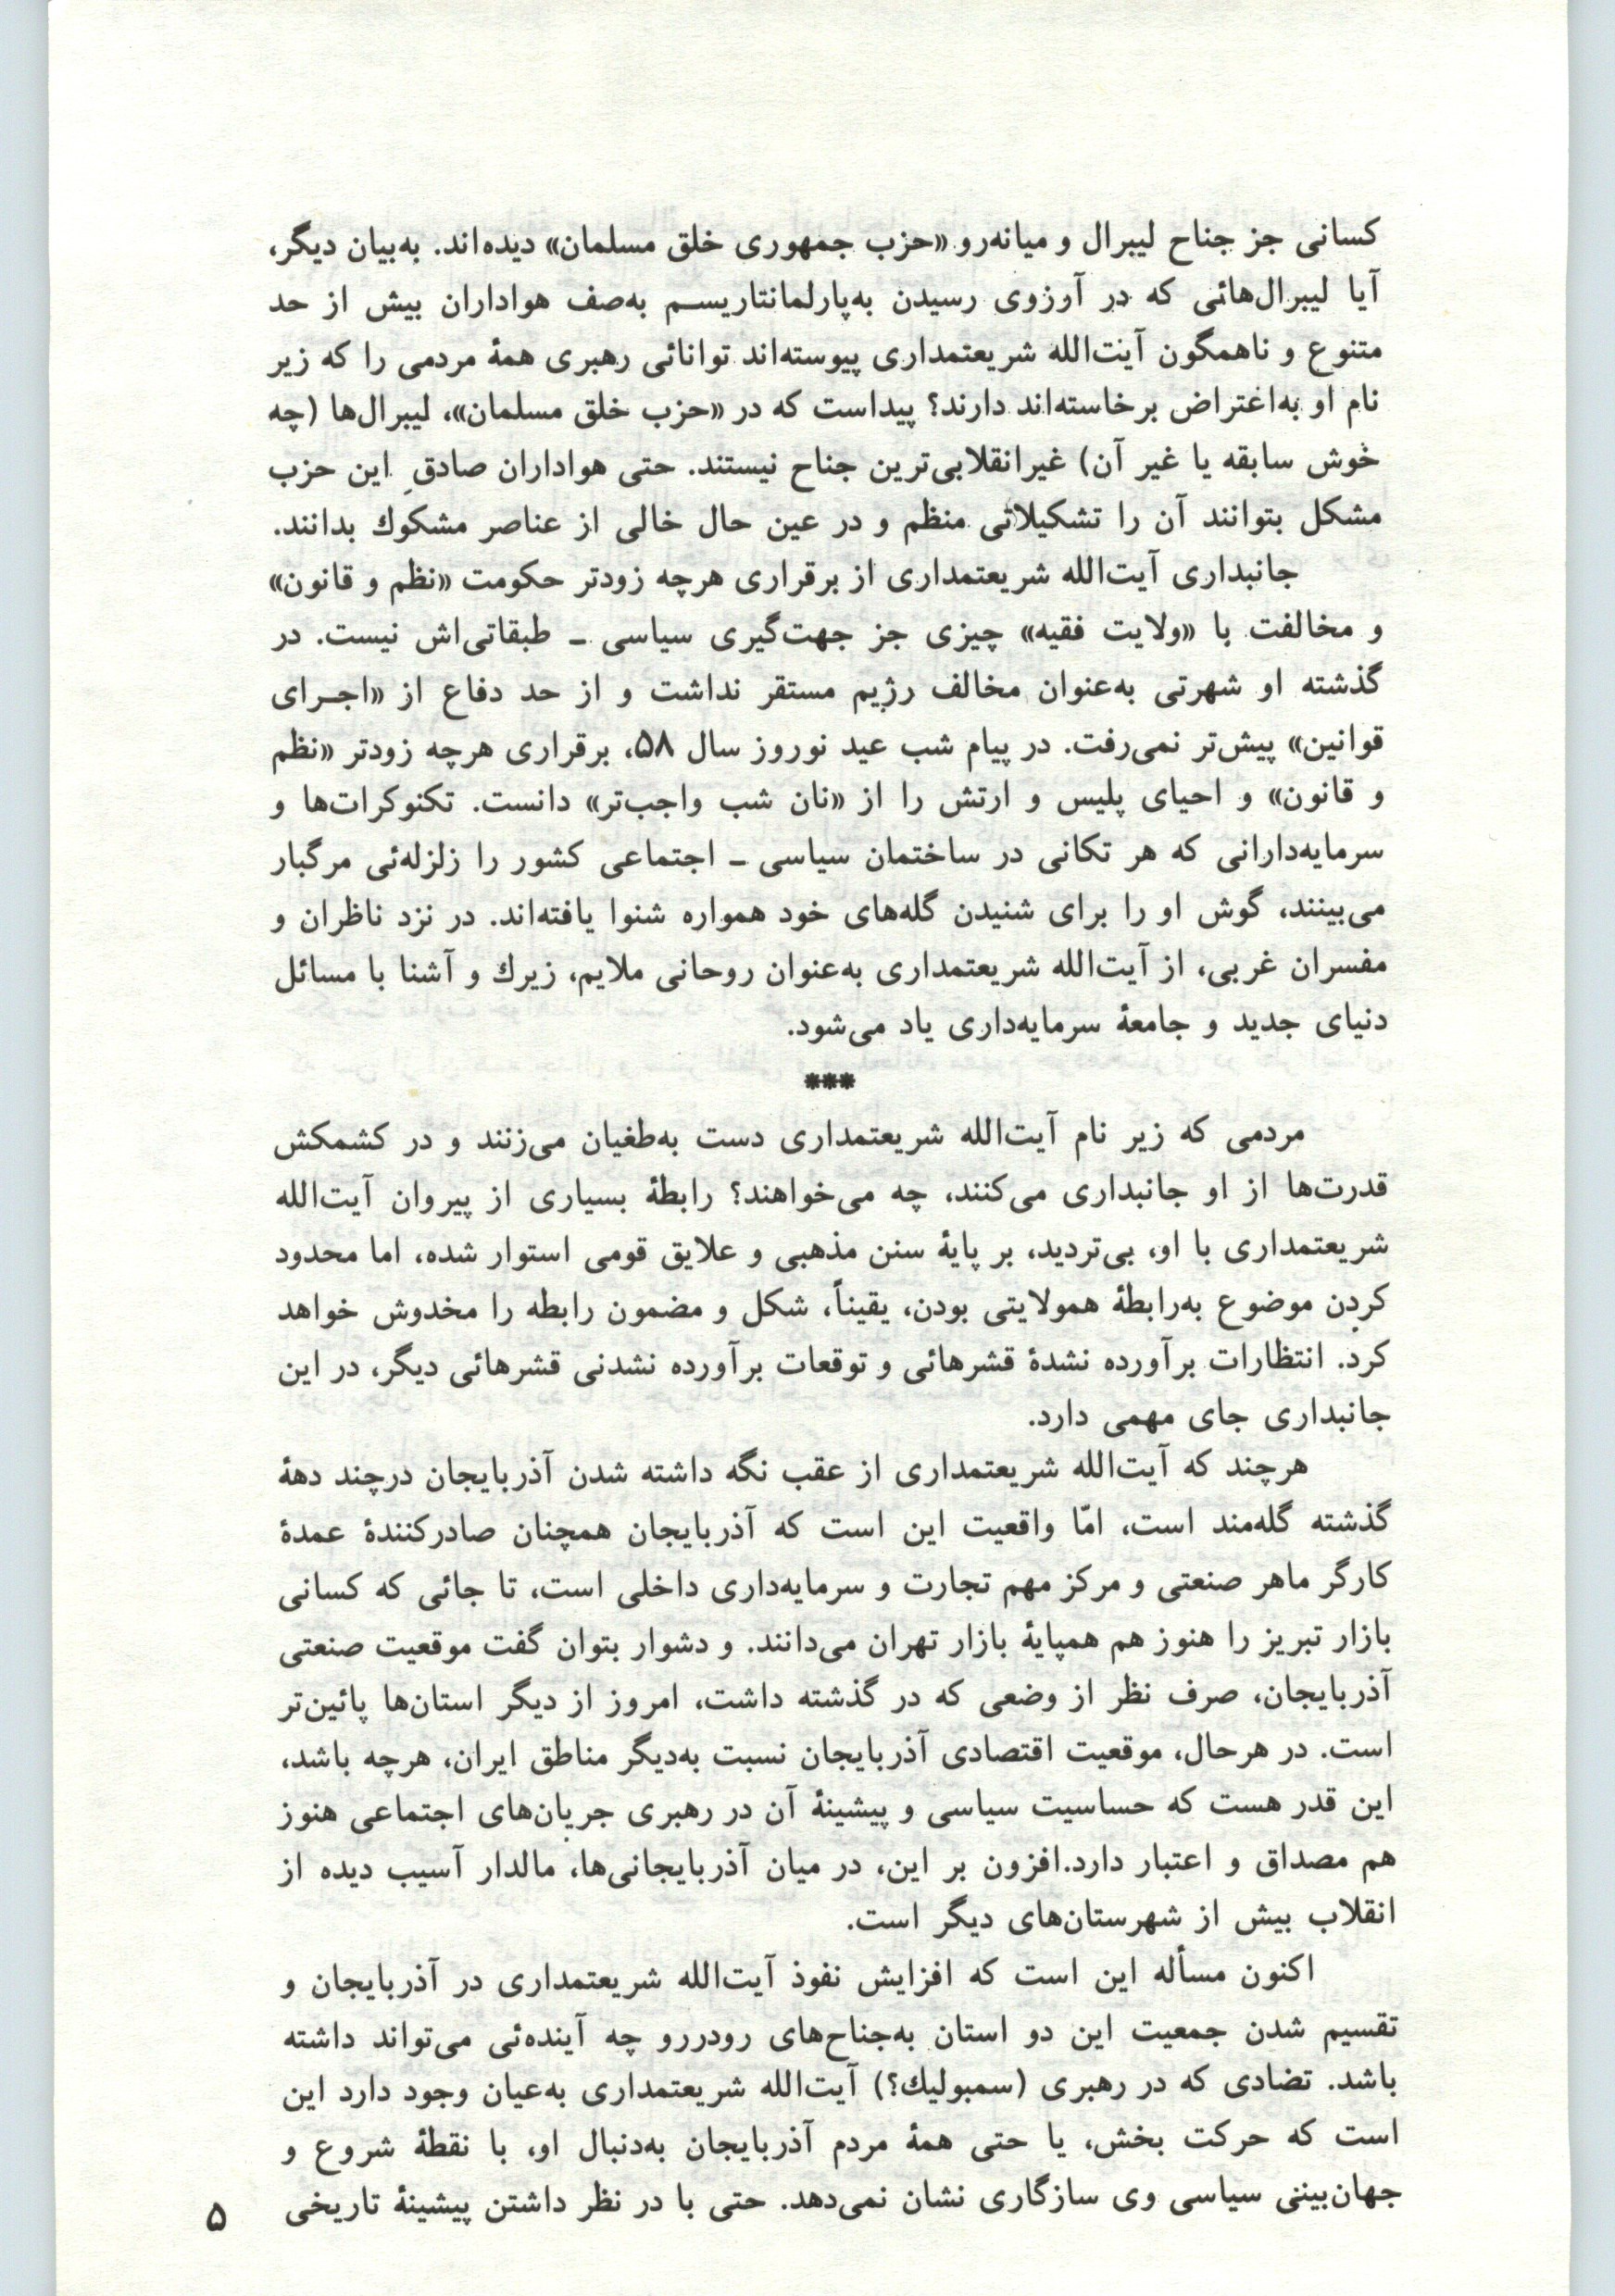 کسانی جز جناح لیبرال و میانه‌رو «حزب جمهوری خلق مسلمان» دیده‌اند. به‌بیان دیگر،
آیا لیبرال‌هائی که در آرزوی رسیدن به‌پارلمانتاریسم به‌صف هواداران بیش از حد
متنوع و ناهمگون آیت‌الله شریعتمداری پیوسته‌اند توانائی رهبری همهٔ مردمی را که زیر
نام او به‌اعتراض برخاسته‌اند دارند؟ پیداست که در «حزب خلق مسلمان»، لیبرال‌ها (چه
خوش سابقه یا غیر آن) غیرانقلابی‌ترین جناح نیستند. حتی هواداران صادقِ این حزب
مشکل بتوانند آن را تشکیلاتی منظم و در عین حال خالی از عناصر مشکوك بدانند.
جانبداری آیت‌الله شریعتمداری از برقراری هرچه زودتر حکومت «نظم و قانون»
و مخالفت با «ولایت فقیه» چیزی جز جهت‌گیری سیاسی ـ طبقاتی‌اش نیست. در
گذشته او شهرتی به‌عنوان مخالف رژیم مستقر نداشت و از حد دفاع از «اجرای
قوانین» پیش‌تر نمی‌رفت. در پیام شب عید نوروز سال ۵۸، برقراری هرچه زودتر «نظم
و قانون» و احیای پلیس و ارتش را از «نان شب واجب‌تر» دانست. تکنوکرات‌ها و
سرمایه‌دارانی که هر تکانی در ساختمان سیاسی ـ اجتماعی کشور را زلزله‌ئی مرگبار
می‌بینند، گوش او را برای شنیدن گله‌های خود همواره شنوا یافته‌اند. در نزد ناظران و
مفسران غربی، از آیت‌الله شریعتمداری به‌عنوان روحانی ملایم، زیرك و آشنا با مسائل
دنیای جدید و جامعهٔ سرمایه‌داری یاد می‌شود.
***
مردمی که زیر نام آیت‌الله شریعتمداری دست به‌طغیان می‌زنند و در کشمکش
قدرت‌ها از او جانبداری می‌کنند، چه می‌خواهند؟ رابطهٔ بسیاری از پیروان آیت‌الله
شریعتمداری با او، بی‌تردید، بر پایهٔ سنن مذهبی و علایق قومی استوار شده، اما محدود
کردن موضوع به‌رابطهٔ همولایتی بودن، یقیناً، شکل و مضمون رابطه را مخدوش خواهد
کرد. انتظارات برآورده نشدهٔ قشرهائی و توقعات برآورده نشدنی قشرهائی دیگر، در این
جانبداری جای مهمی دارد.
هرچند که آیت‌الله شریعتمداری از عقب نگه داشته شدن آذربایجان درچند دههٔ
گذشته گله‌مند است، امّا واقعیت این است که آذربایجان همچنان صادرکنندهٔ عمدهٔ
کارگر ماهر صنعتی و مرکز مهم تجارت و سرمایه‌داری داخلی است، تا جائی که کسانی
بازار تبریز را هنوز هم همپایهٔ بازار تهران می‌دانند. و دشوار بتوان گفت موقعیت صنعتی
آذربایجان، صرف نظر از وضعی که در گذشته داشت، امروز از دیگر استان‌ها پائین‌تر
است. در هرحال، موقعیت اقتصادی آذربایجان نسبت به‌دیگر مناطق ایران، هرچه باشد،
این قدر هست که حساسیت سیاسی و پیشینهٔ آن در رهبری جریان‌های اجتماعی هنوز
هم مصداق و اعتبار دارد.افزون بر این، در میان آذربایجانی‌ها، مالدار آسیب دیده از
انقلاب بیش از شهرستان‌های دیگر است.
اکنون مسأله این است که افزایش نفوذ آیت‌الله شریعتمداری در آذربایجان و
تقسیم شدن جمعیت این دو استان به‌جناح‌های رودررو چه آینده‌ئی می‌تواند داشته
باشد. تضادی که در رهبری (سمبولیك؟) آیت‌الله شریعتمداری به‌عیان وجود دارد این
است که حرکت بخش، یا حتی همهٔ مردم آذربایجان به‌دنبال او، با نقطهٔ شروع و
جهان‌بینی سیاسی وی سازگاری نشان نمی‌دهد. حتی با در نظر داشتن پیشینهٔ تاریخی
۵